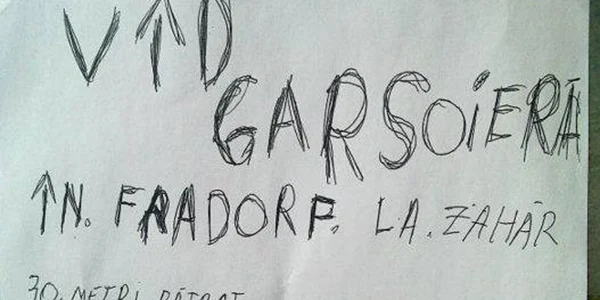 VÎD
GARSOiERĂ
ÎN. FRADORF. LA. ZAHĂR
30. METRI. PĂTRAȚ